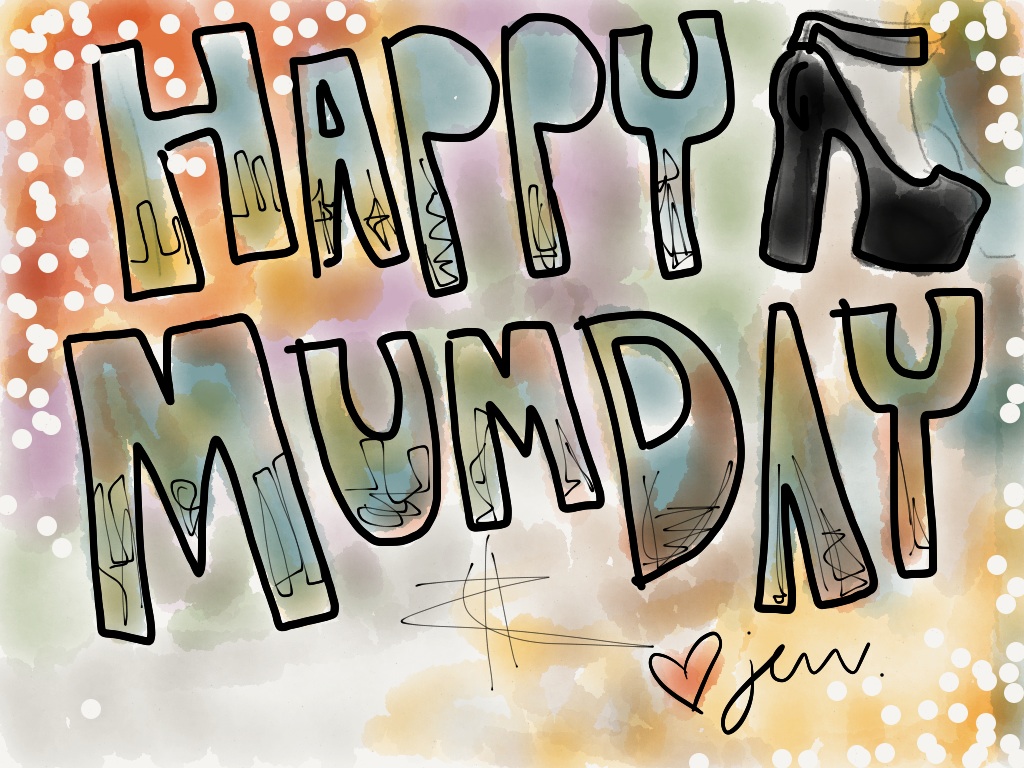 HAPPY
MUMDAY
jen.